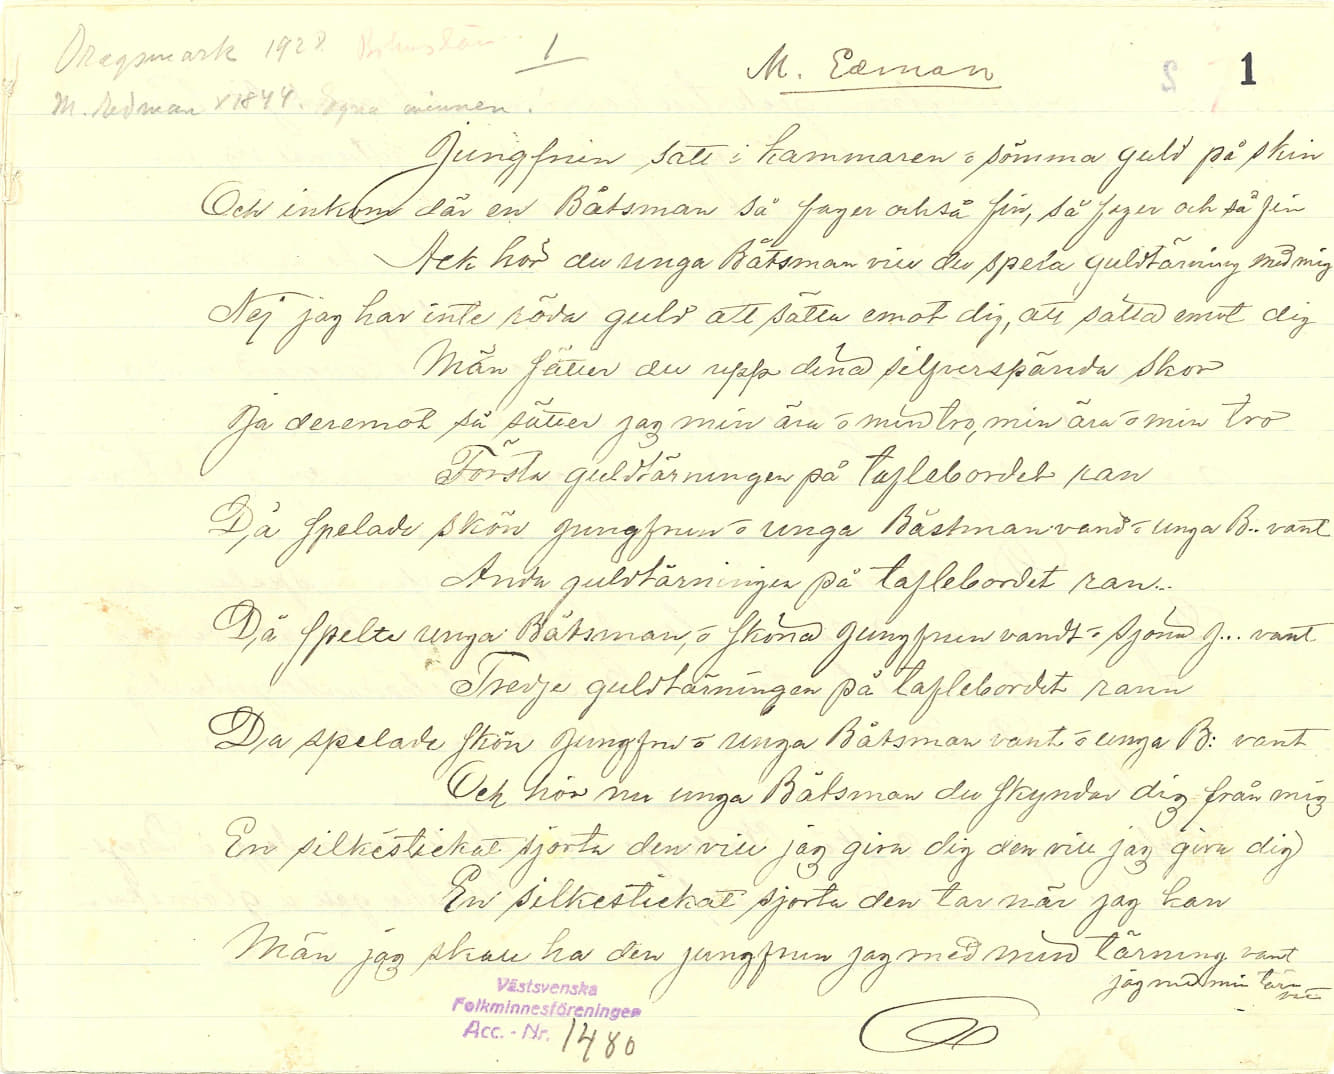 Dragsmark 1928. Bohuslän. 1
M. Edman 1
M. Aedman f 1844. Egna minnen.
Jungfrun satt i kammaren o sömma guld på skin
Och inkom där en Båtsman så fager också fin, så fager och så fin
Ack hör du unga Båtsman vill du spela guldtärning med mig
Nej jag har inte röda guld att sätta emot dig, att sätta emot dig
Män sätter du upp dina silfverspända skor
Ja deremot så sätter jag min ära o min tro, min ära o min tro
Första guldtärningen på taflebordet ran
Då spelade skön jungfrun o unga Båstman vand o unga B.. vant
Anda guldtärningen på taflebordet ran..
Då spelte unga Båtsman, o sköna jungfrun vandt o sjöna J... vant
Tredje guldtärningen på taflebordet rann
Da spelade skön jungfru o unga Båtsman vant o unga B: vant
Och hör nu unga Båtsman du skyndar dig från mig
En silkestickat sjorta den vill jag giva dig den vill jag giva dig
En silkestickat sjorta den tar när jag kan
Män jag skall ha den jungfrun jag med min tärning vant
jag med min tärn
Västsvenska
Folkminnesföreningen
Acc. - Nr. 1480